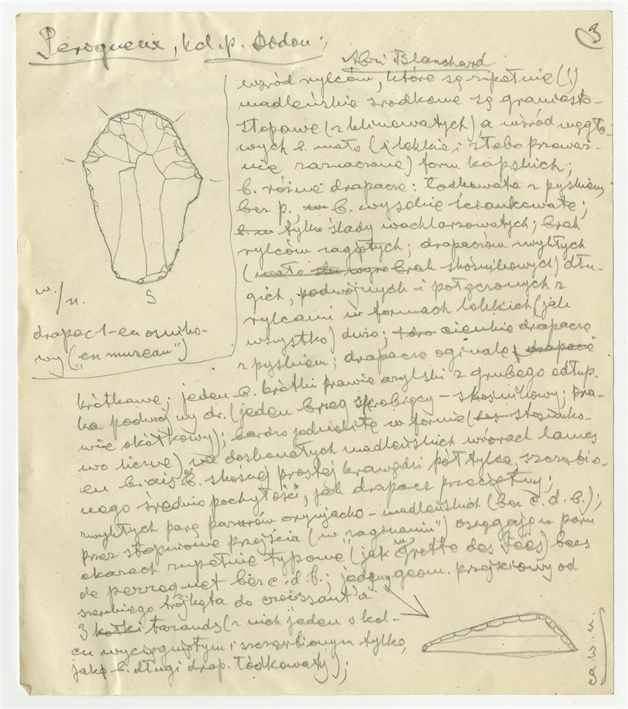 Périgueux, kol. p. Dodon;
3
Abri Blanchard
wśród rylców, które są zupełnie (!)
madleńskie środkowe są graniasto-
słupowe (z klinowatych) a wśród węgło-
wych b. mało (i lekkie i słabo przeważ-
nie, zaznaczone) form łapskich;
b. różne drapacze: łódkowate z pyskiem
bez p. b. wysokie ściankowate;
tylko ślady wachlarzowatych; brak
rylców zagiętych; drapaczów zwykłych
(brak skośnikowych) dłu-
gich, podwójnych i połączonych z
rylcami w formach lekkich (jak
wszystko) dużo; cienkie drapacze
z pyskiem; drapacze ogivale
w./n.
S
drapacz-en ośniko-
wy („en museau")
krótkawe; jeden b. krótki prawie azylski z grubego odłup-
ka podwójny dr. (jeden brzeg skrobiący - skośnikowy; pra-
wie okółkowy); bardzo jednolite w formie
wo liczne) doskonałych madleńskich wśród lames
en biais b. skośnej prostej krawędzi pół tylca, szczerbio-
nego średnio pochyłości, jak drapacz przeciętny;
zwykłych parę pazurów oryniacko-madleńskich (bez c. d. b.);
przez stopniowe przejścia (w „zaginaniu") osiągają w paru
okazach zupełnie typowe (jak w Grotte des Fées) becs
de perroquet bez c. d. b.; jedyny geom. przejściowy od
szerokiego trójkąta do croissant'a
3 tarands (z nich jeden o koł-
cu wyciągniętym i szczerbionym tylko,
jako b. długi drap. łódkowaty);
c. w. n.